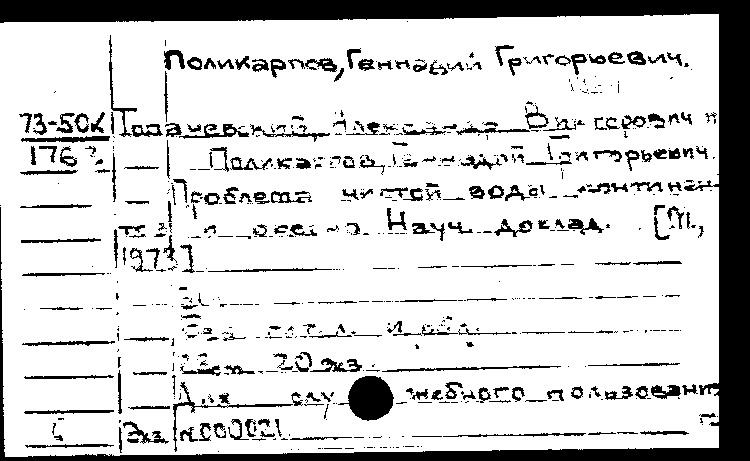 Поликарпов, Геннадий Григорьевич.
73-50К Александр Викторович и
176 Поликарпов, Геннадий Григорьевич.
Проблема чистой воды континен-
тов и океана Науч. доклад. [М.,
1973]
Без тит. л. и обл.
22 см 20 экз.
Для служебного пользования
Экз N000021